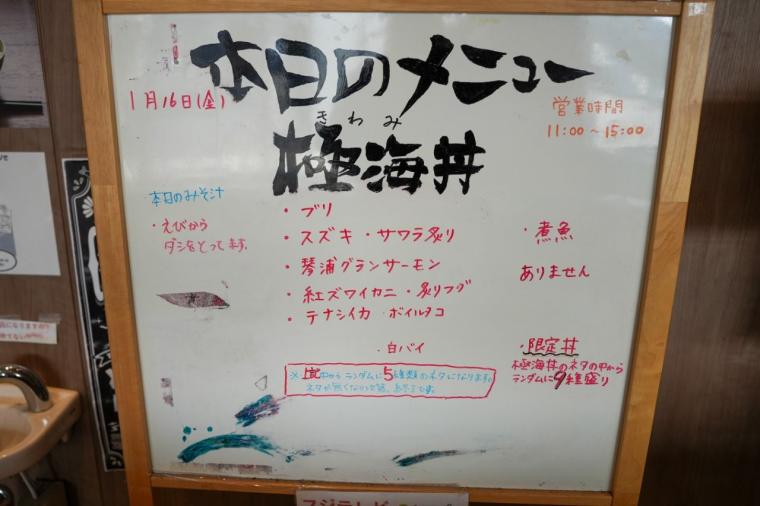 本日のメニュー
1月16日(金)
営業時間
11:00～15:00
きわみ
極海丼
本日のみそ汁
・えびから
ダシをとってます。
・ブリ
・スズキ ・サワラ炙り
・琴浦グランサーモン
・紅ズワイカニ ・炙りフグ
・テナシイカ ・ボイルタコ
・白バイ
※上記中からランダムに5種類のネタになります。
ネタが無くなり次第、終了です。
・煮魚
ありません
・限定丼
極海丼のネタの中から
ランダムに9種盛り
フジテレビ